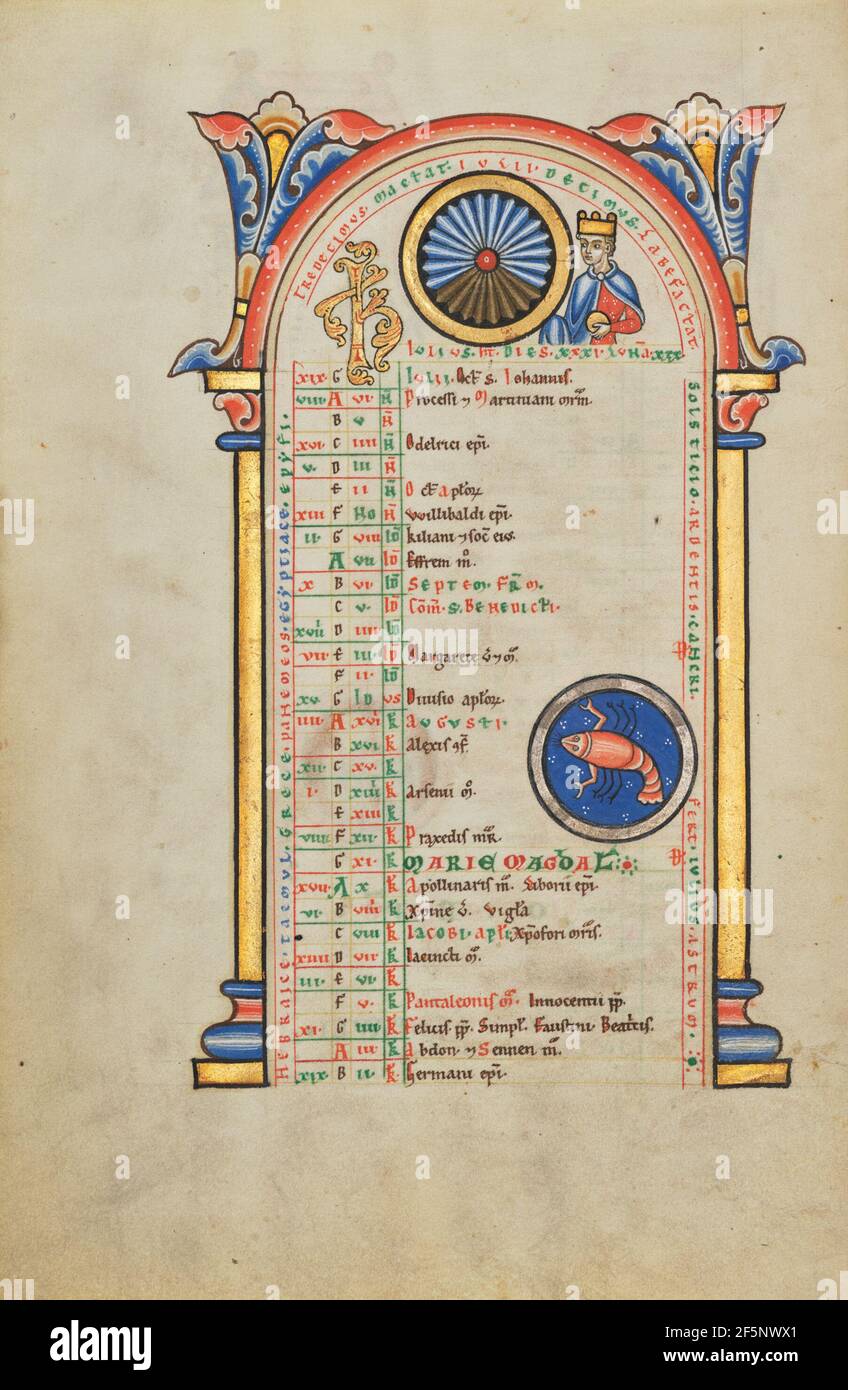 TREDECIMUS. MACTAT. IULII. DECIMUS. LABEFACTAT.
IULIUS. ht. DIES. XXXI. LUNA. XXX.
xix G IULII. Oct. S. Iohannis.
viii A vi N Processi ⁊ Martiniani mrm.
B v N
xvi C iiii N Odelrici epi.
v. D iii N
E ii N Oct. aplorum
xiii F No N Willibaldi epi.
ii G viii ID Kiliani ⁊ soc eius.
A vii ID Effrem m.
x B vi ID SEPTEM. FRM.
C v. ID COM. S. BENEDICTI.
xviii D iiii ID
vii E iii ID Margarete v ⁊ m.
F ii ID
xv G ID US Divisio aplorum
iiii A xvii K AUGUSTI.
B xvi K Alexis cf.
xii C xv K
i D xiiii K Arsenii m.
E xiii K
viiii F xii K Praxedis
G xi K MARIE MAGDAL
xvii A x K Apollinaris m. Liborii epi.
vi B viiii K Xpine v. Vigla
C viii K IACOBI. APLI. Xpofori mris.
xiiii D vii K Iacincti m.
iii E vi K
F v. K Pantaleonis m. Innocentii pp.
xi G iiii K Felicis pp. Simpl. Faustini. Beatris.
A iii K Abdon ⁊ Sennen m.
xix B ii K Germani epi.
HEBRAICE. TAEMUL. GRECE. PANEMEOS. EGYPTIACE. EPYFI.
SOLSTICIO. ARDENTIS. CANCRI.
FERT. IULIUS. ASTRUM.
a
alamy
Image ID: 2F5NWX1
www.alamy.com